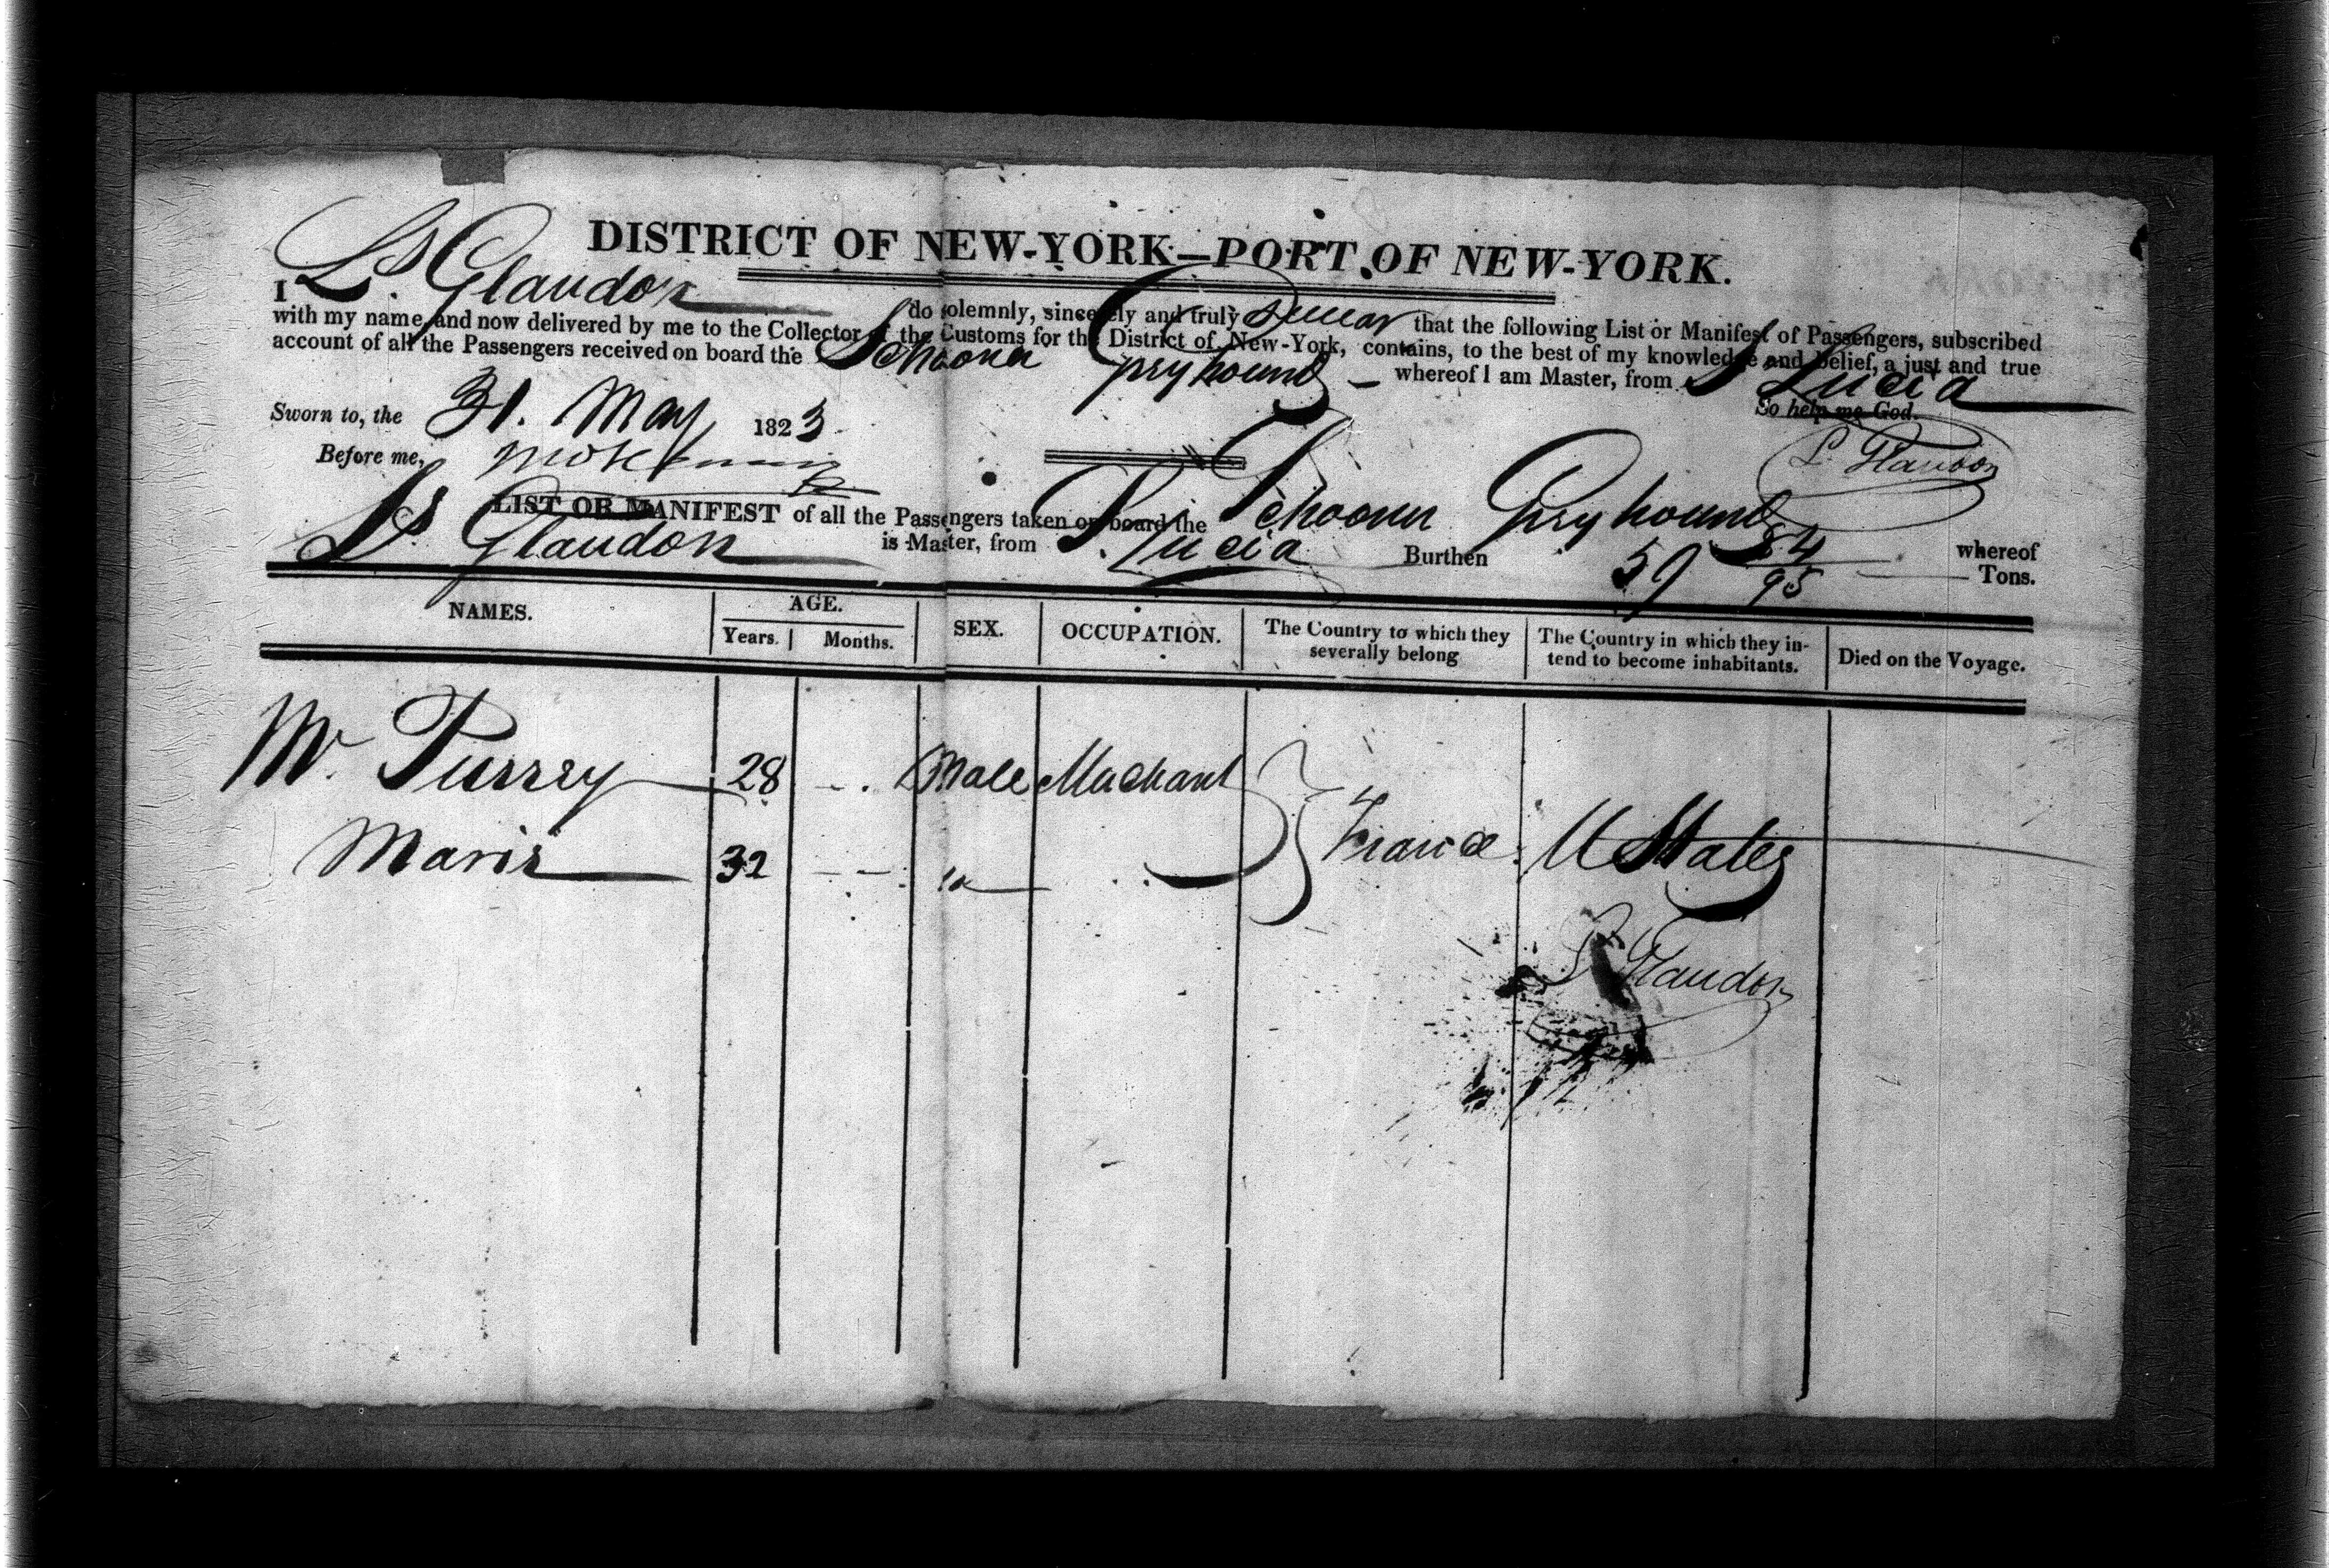 DISTRICT OF NEW-YORK—PORT OF NEW-YORK.
I Ls. Glaudon do solemnly, sincerely and truly Swear that the following List or Manifest of Passengers, subscribed
with my name, and now delivered by me to the Collector of the Customs for the District of New-York, contains, to the best of my knowledge and belief, a just and true
account of all the Passengers received on board the Schooner Greyhound whereof I am Master, from St Lucia
So help me God.
Sworn to, the 31. May 1823
Before me,
L. Glaudon
LIST OR MANIFEST of all the Passengers taken on board the Schooner Greyhound whereof
Ls. Glaudon is Master, from St. Lucia Burthen 59 84/95 Tons.
NAMES. AGE. SEX. OCCUPATION. The Country to which they severally belong The Country in which they intend to become inhabitants. Died on the Voyage.
Years. Months.
Mr. 28 Male Merchant
32 "
France U States
L Glaudon